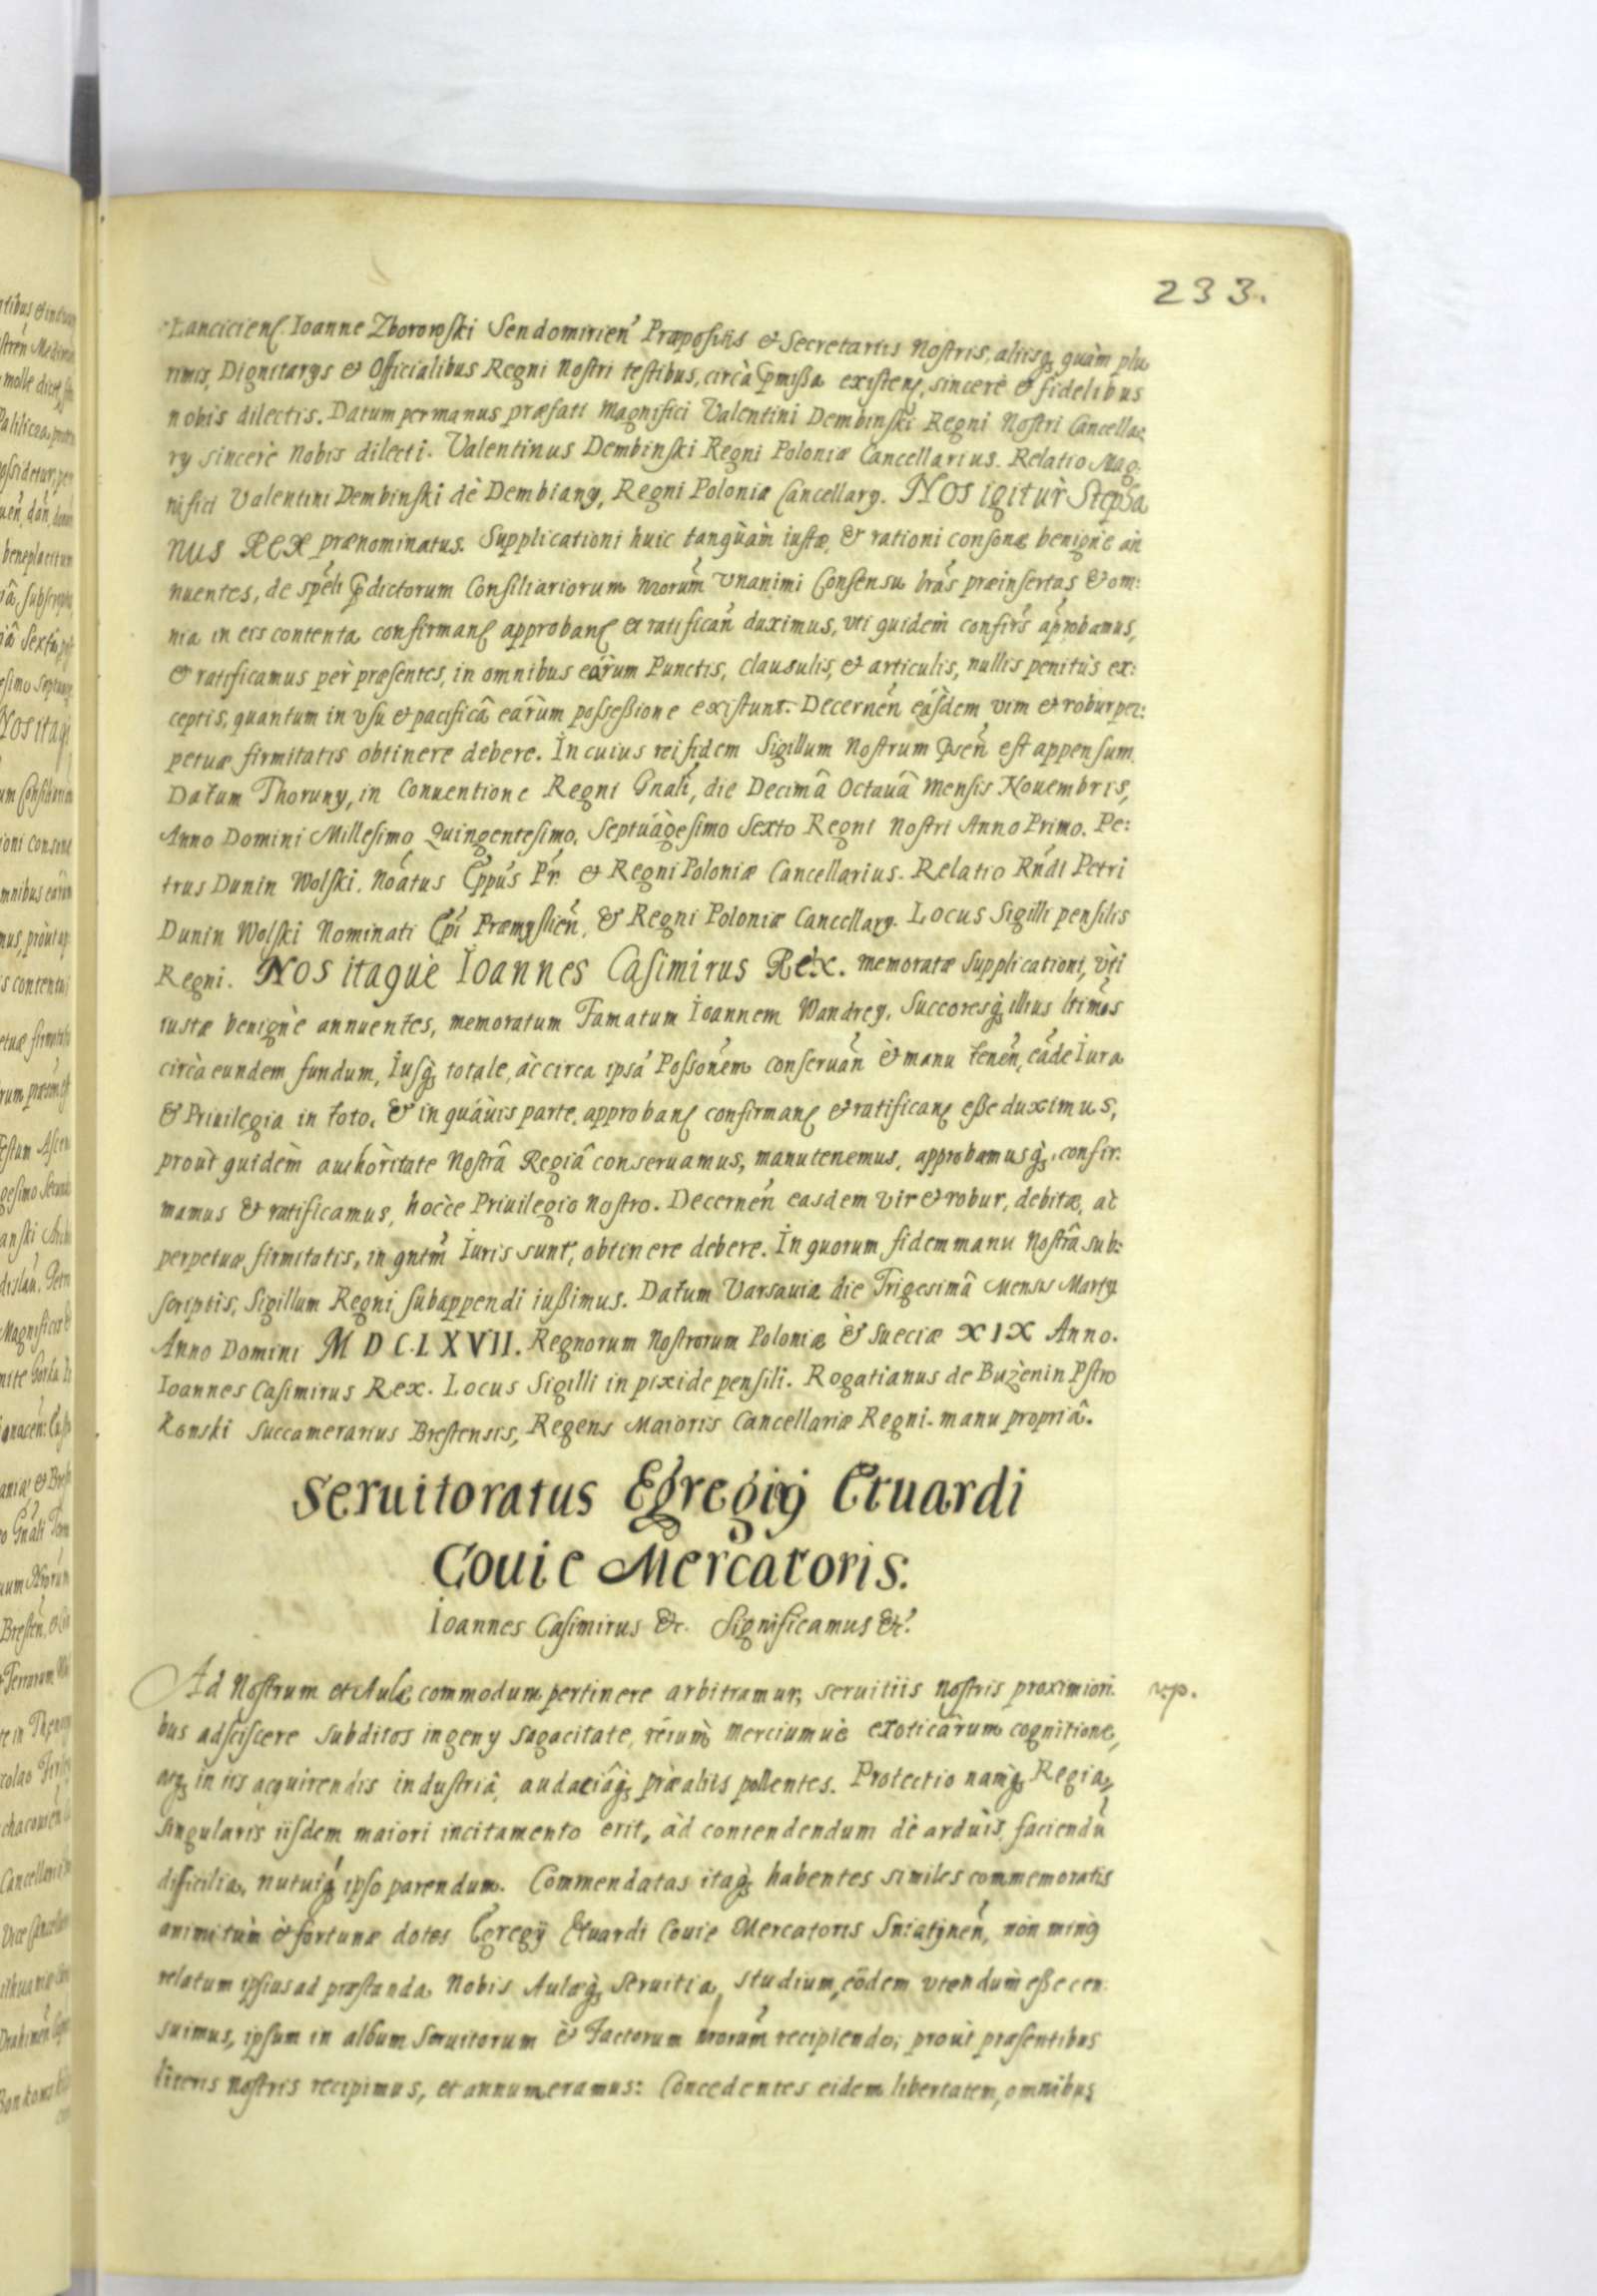 233.
Lancicien. Ioanne Zborowski Sendomirien Præpositis et Secretariis Nostris, aliisq quàm plu
rimis, Dignitarys et Officialibus Regni Nostri testibus, circà pmißa existen, sincerè et fidelibus
nobis dilectis. Datum per manus præfati Magnifici Valentini Dembinski Regni Nostri Cancella
ry sincerè Nobis dilecti. Valentinus Dembinski Regni Poloniæ Cancellarius. Relatio Mag:
nifici Valentini Dembinski dè Dembiany, Regni Poloniæ Cancellary. Nos igitùr Stepha
nus Rex prænominatus. Supplicationi huic tanquàm iustæ, et rationi consonæ benignè an
nuentes, de spéli pdictorum Consiliariorum nrorum vnanimi Consensu lras præinsertas et om:
nia in eis contenta confirman approban et ratifican duximus, vti quidem confirs approbamus,
et ratificamus pèr præsentes, in omnibus eárum Punctis, clausulis, et articulis, nullis penitùs ex:
ceptis, quantum in vsu et pacificâ eárùm posseßione existunt. Decernen eásdem vim et robur per:
petuæ firmitatis obtinere debere. In cuius rei fidem Sigillum Nostrum psen est appensum.
Datum Thoruny, in Conuentione Regni Gnali, die Decimâ Octauâ Mensis Nouembris,
Anno Domini Millesimo Quingentesimo, Septuàgesimo Sexto Regni Nostri Anno Primo. Pe:
trus Dunin Wolski, Noatus Eppus Pr. et Regni Poloniæ Cancellarius. Relatio Rndi Petri
Dunin Wolski Nominati Epi Præmyslien, et Regni Poloniæ Cancellary. Locus Sigilli pensilis
Regni. Nos itaquè Ioannes Casimirus Rex. memoratæ Supplicationi, vti
iustæ benignè annuentes, memoratum Famatum Ioannem Wandrey, Succoresq illius ltimos
circà eundem fundum, Iusq totale, àc circa ipsá Possonem conseruan et manu tenen, eáde Iura
et Priuilegia in toto, et in quáuis parte, approban confirman et ratifican eße duximus,
proùt quidèm authoritate Nostrâ Regiâ conseruamus, manutenemus, approbamusq, confir:
mamus et ratificamus, hocce Priuilegio Nostro. Decernen easdem vir et robur, debitæ, àc
perpetuæ firmitatis, in qntm Iuris sunt, obtinere debere. In quorum fidem manu Nostrâ sub:
scriptis, Sigillum Regni subappendi iußimus. Datum Varsauiæ die Trigesimâ Mensis Marty
Anno Domini M D C.L X VII. Regnorum Nostrorum Poloniæ et Sueciæ XIX Anno.
Ioannes Casimirus Rex. Locus Sigilli in pixide pensili. Rogatianus de Bużenin Pstro
konski Succamerarius Brestensis, Regens Maioris Cancellariæ Regni. manu propriâ.
Seruitoratus Egregiij Etuardi
Couie Mercatoris.
Ioannes Casimirus etc. Significamus etc.
Ad Nostrum et Aulæ commodum pertinere arbitramur, seruitiis nostris proximiori
bus adsciscere subditos ingeny sagacitate, rerum Merciumuè exoticarum cognitione,
atq in iis acquirendis industriâ, audaciâq præ aliis pollentes. Protectio namq Regia,
singularis iisdem maiori incitamento erit, àd contendendum dè arduis, faciendu
difficilia, nutuiq ipso parendum. Commendatas itaq habentes similes commemoratis
animi tùm et fortunæ dotes Egregij Etuardi Couie Mercatoris Sniatynen, non minq
relatum ipsius ad præstanda Nobis Aulæq Seruitia studium, eôdem vtendum eße cen
suimus, ipsum in album Seruitorum et Factorum nrorum recipiendo; proùt præsentibus
literis nostris recipimus, et annumeramus: Concedentes eidem libertatem, omnibus